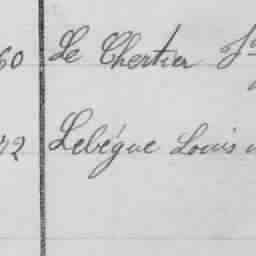 60 Le Chertier
Lebégue Louis